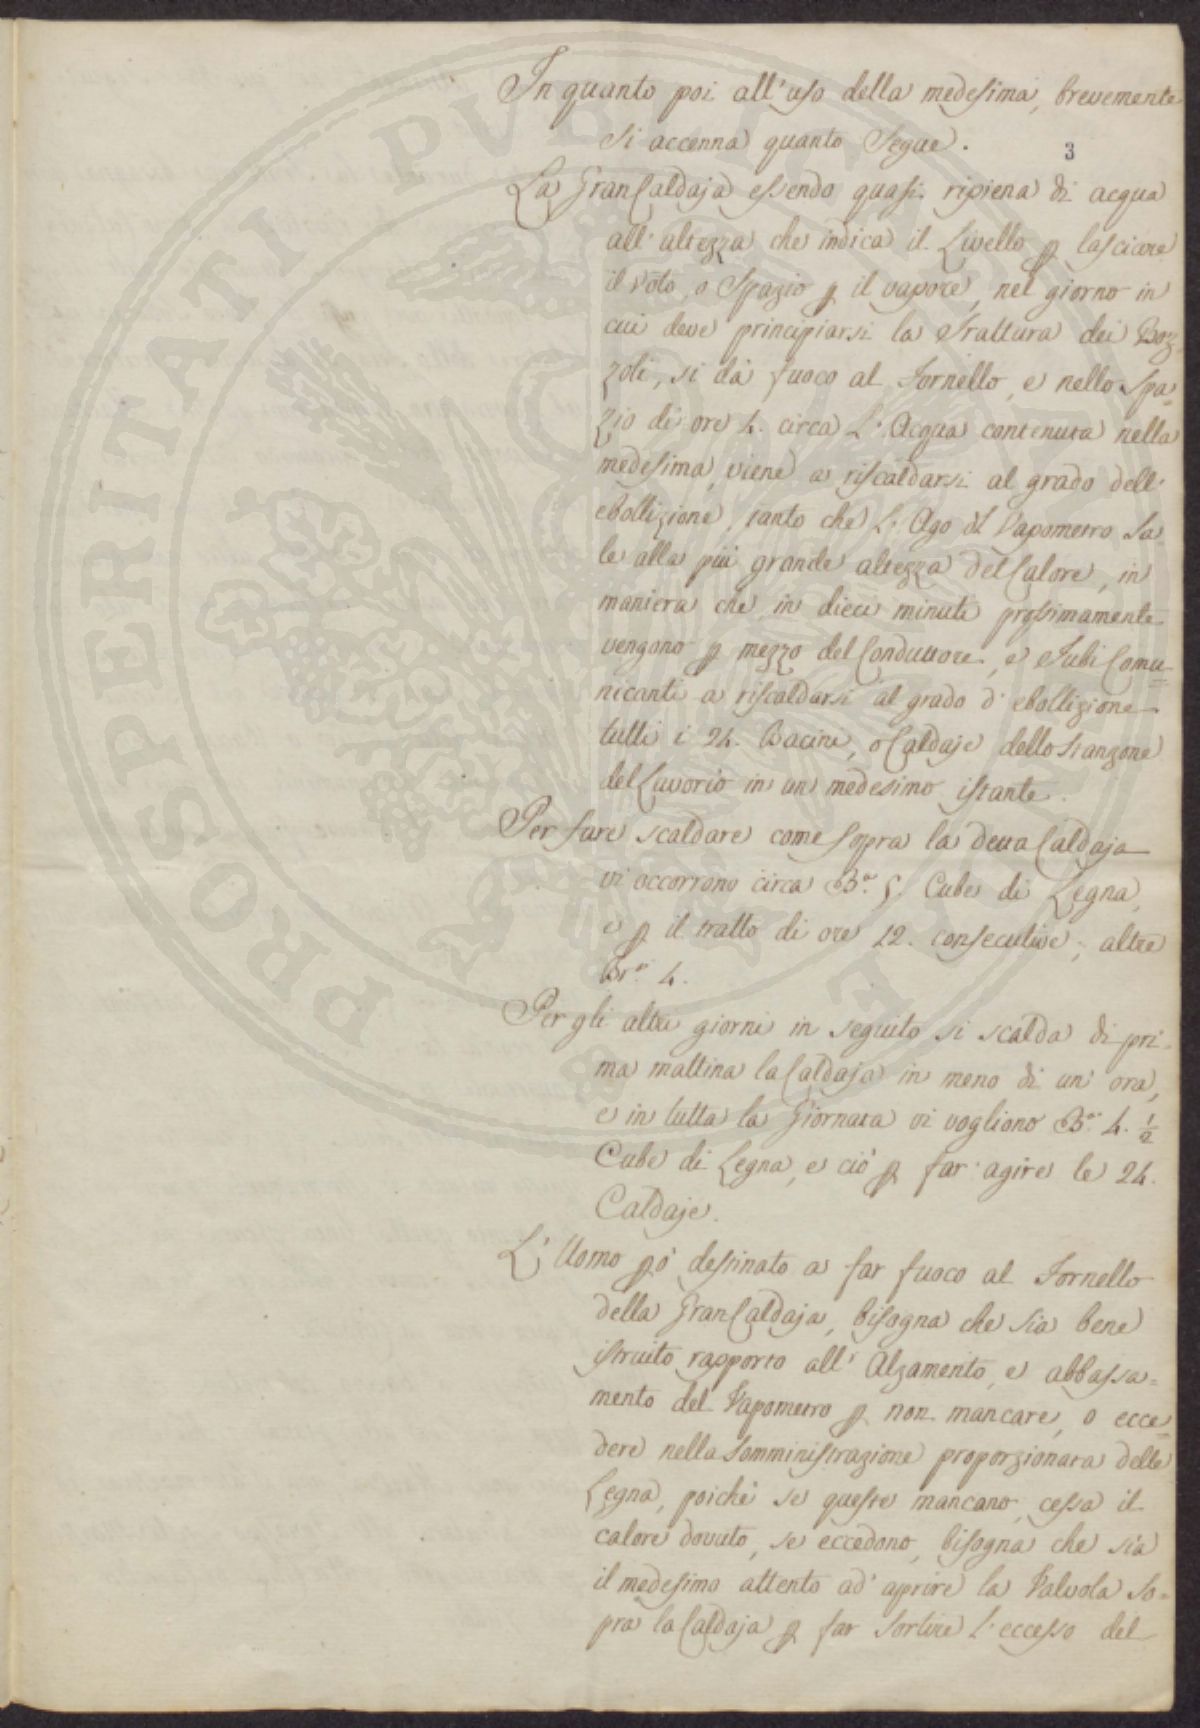 In quanto poi all'uso della medesima, brevemente
si accenna quanto segue.
3
La Gran Caldaja essendo quasi ripiena di acqua
all'altezza che indica il Livello p lasciare
il vòto, o Spazio p il vapore, nel giorno in
cui deve principiarsi la Trattura dei Boz-
zoli, si dà fuoco al Fornello, e nello Spa-
zio di ore 4. circa L'Acqua contenuta nella
medesima, viene a riscaldarsi al grado dell'
ebollizione, tanto che L'Ago del Vapometro Sa-
le alla più grande altezza del Calore, in
maniera che in dieci minuti prossimamente
vengono p mezzo del Conduttore, e Tubi Comu-
nicanti a riscaldarsi al grado d'ebollizione
tutti i 24. Bacini, o Caldaje dello Stanzone
del Lavorio in un medesimo istante.
Per fare scaldare come sopra la detta Caldaja
vi occorrono circa B.a 5. Cube di Legna,
e p il tratto di ore 12. consecutive, altre
Br.a 4.
Per gli altri giorni in seguito si scalda di pri-
ma mattina la Caldaja in meno di un'ora,
e in tutta la Giornata vi vogliono B.a 4. 1/2
Cube di Legna, e ciò p far agire le 24.
Caldaje.
L'Uomo pò destinato a far fuoco al Fornello
della Gran Caldaja, bisogna che sia bene
istruito rapporto all'Alzamento, e abbassa-
mento del Vapometro p non mancare, o ecce-
dere nella Somministrazione proporzionata delle
Legna, poiché se queste mancano, cessa il
calore dovuto, se eccedono, bisogna che sia
il medesimo attento ad aprire la Valvola So-
pra la Caldaja p far sortire l'eccesso del
PROSPERITATI PUBLICAE